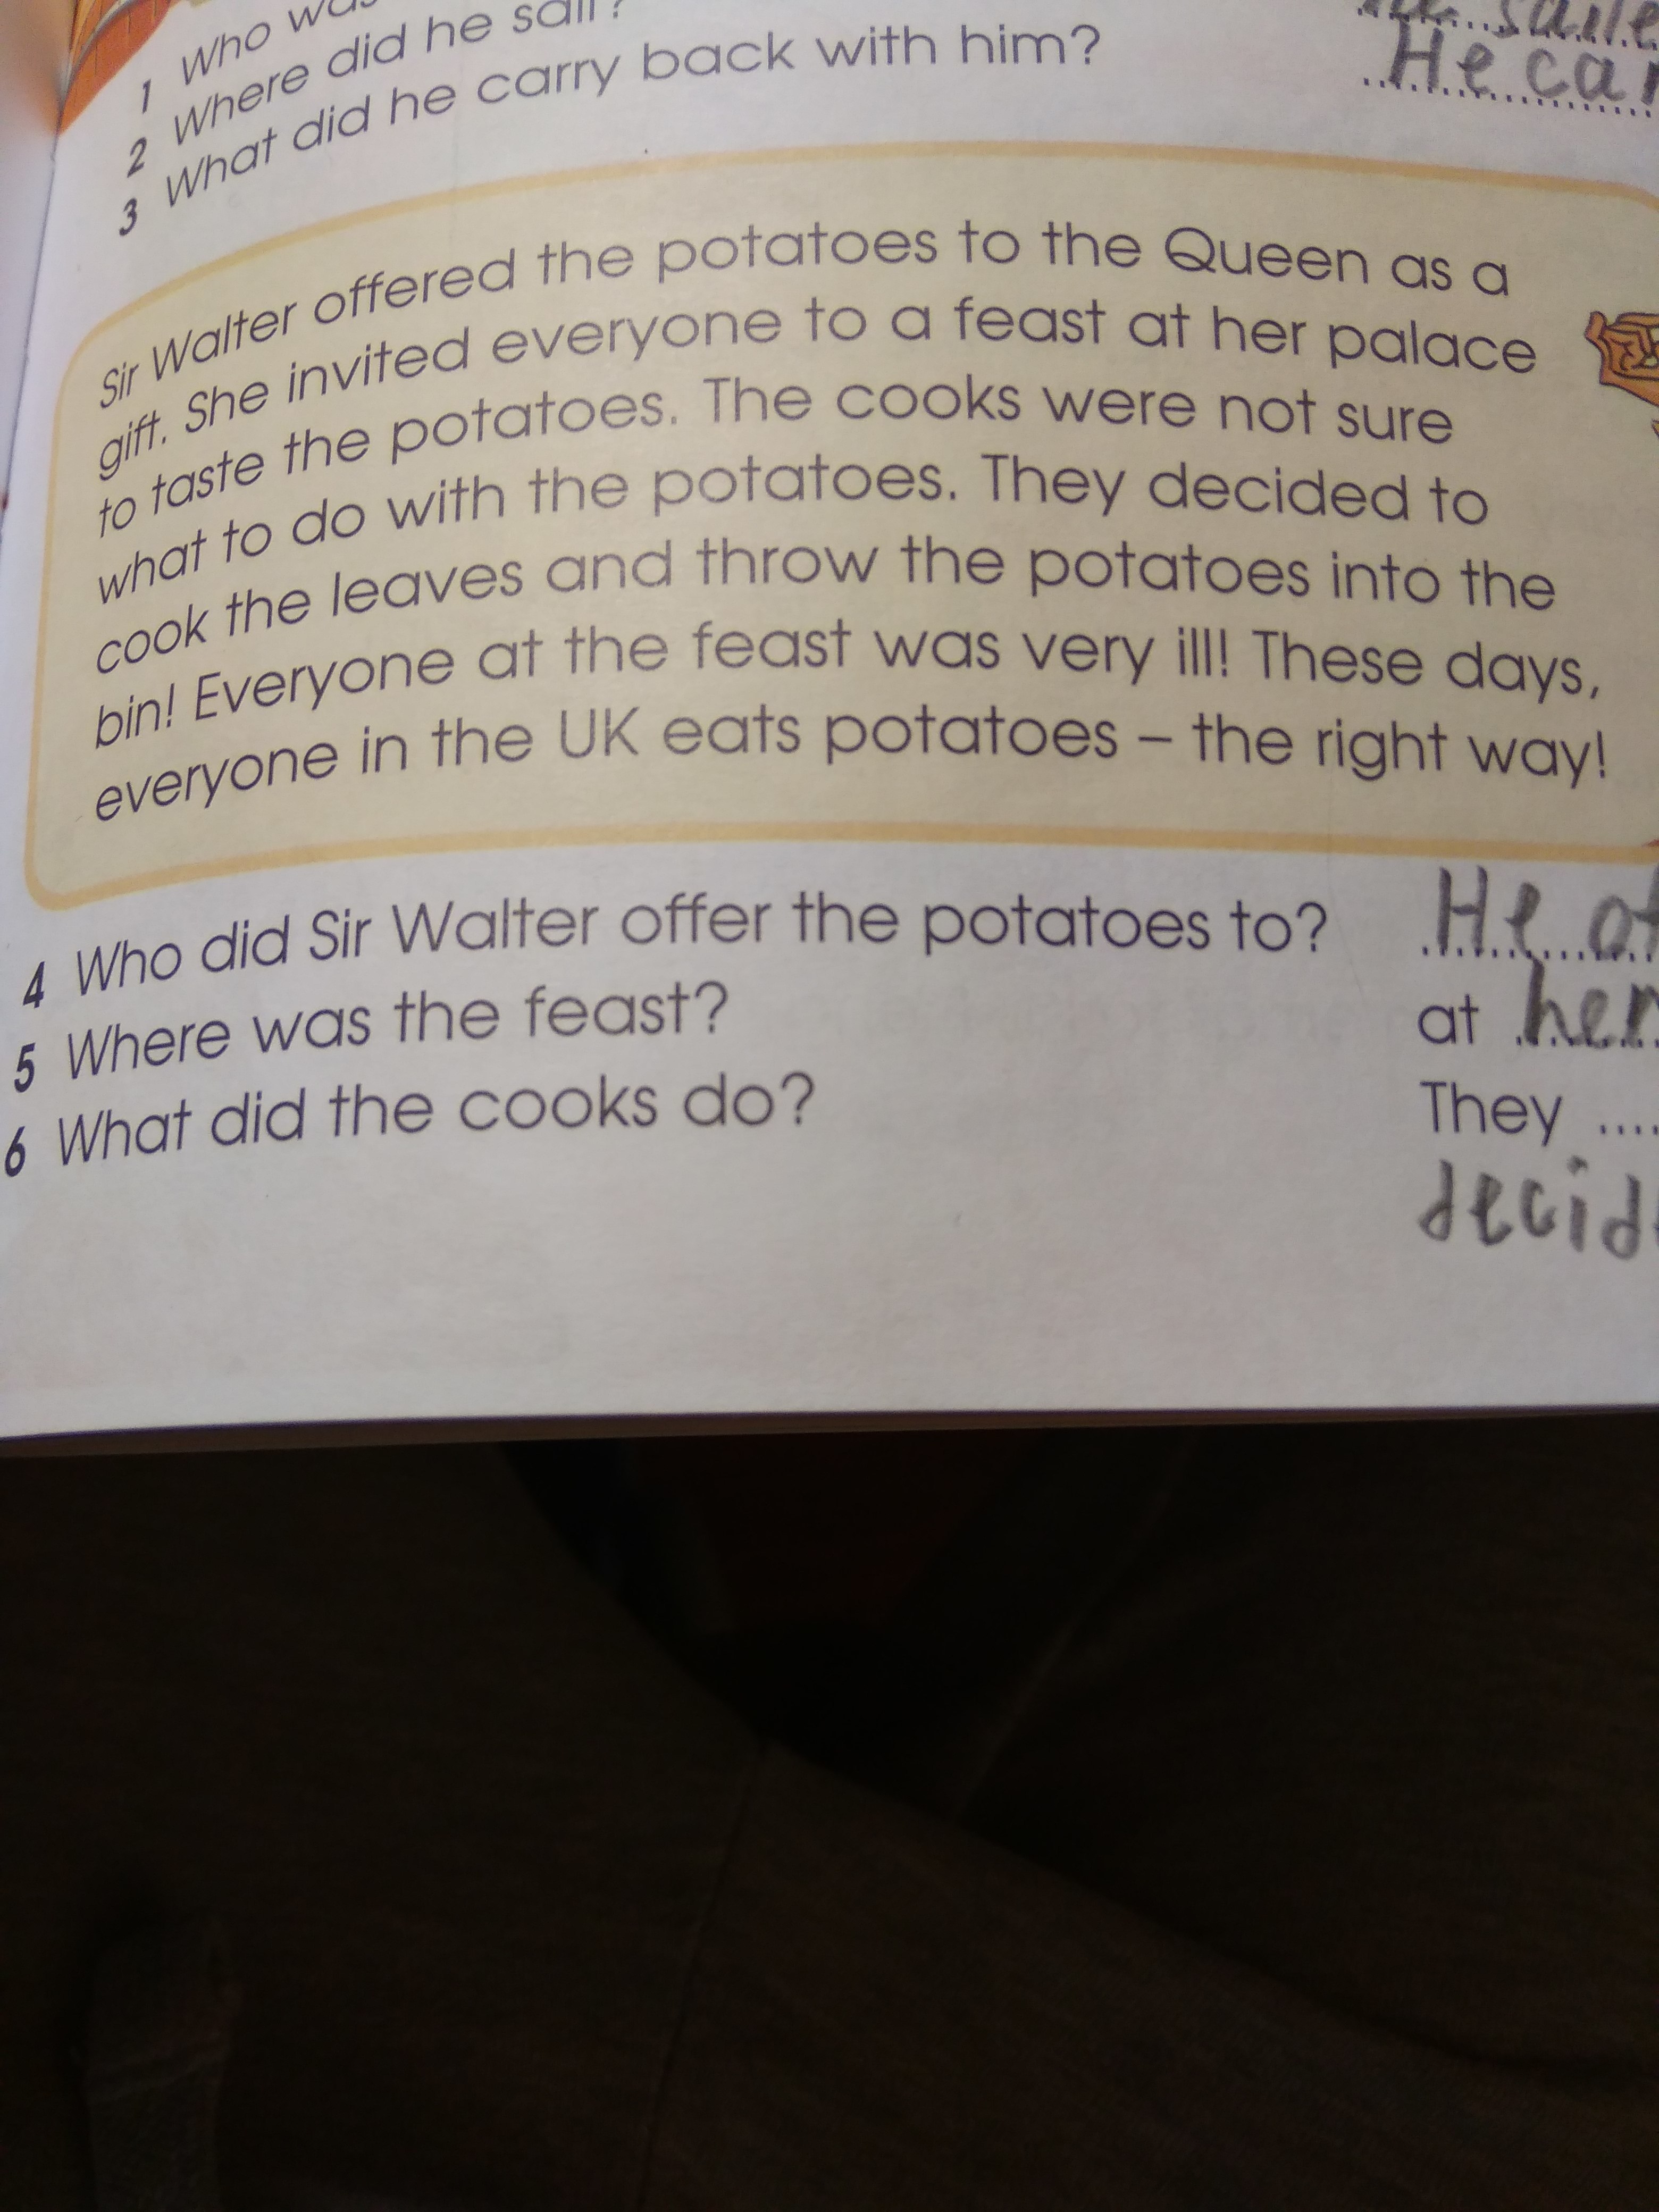 1 Who was
2 Where did he sail?
3 What did he carry back with him?
saile
He car
Sir Walter offered the potatoes to the Queen as a
gift. She invited everyone to a feast at her palace
to taste the potatoes. The cooks were not sure
what to do with the potatoes. They decided to
cook the leaves and throw the potatoes into the
bin! Everyone at the feast was very ill! These days,
everyone in the UK eats potatoes – the right way!
4 Who did Sir Walter offer the potatoes to? He of
5 Where was the feast? at her
6 What did the cooks do? They ....
decid